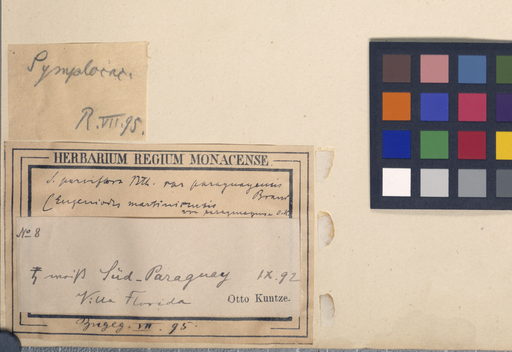 Symplocac.
R. VII. 95.
HERBARIUM REGIUM MONACENSE.
S. parviflora Bth. var paraguayensis
Brand
(Eugeniodes martinicensis
var paraguayensis O.K.
No 8
♄ weiß Süd-Paraguay IX.92
Villa Florida Otto Kuntze.
VII. 95.